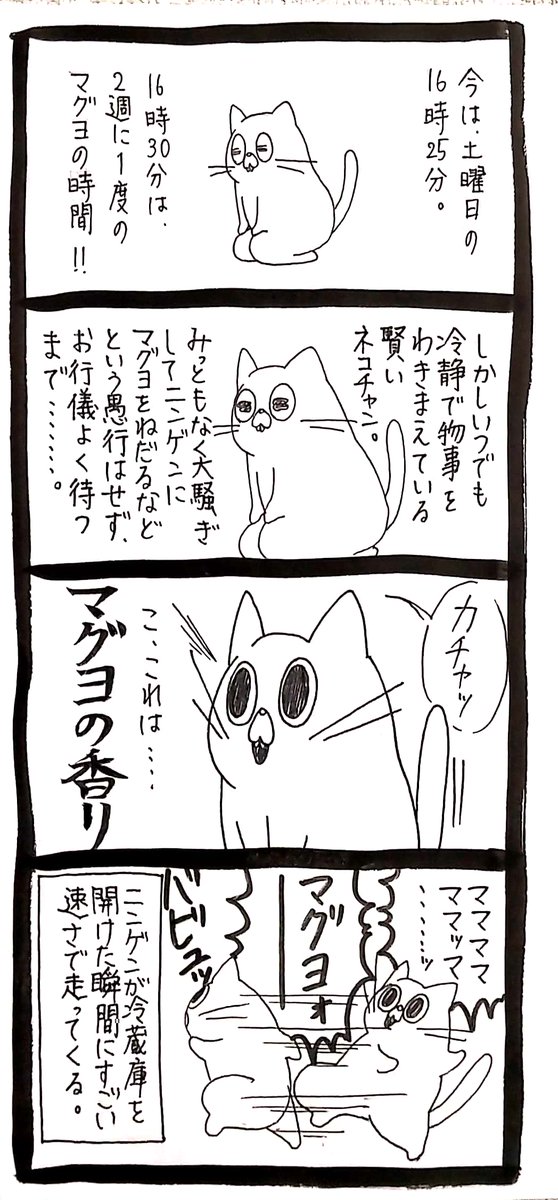 今は、土曜日の
16時25分。
16時30分は、
2週に1度の
マグヨの時間!!
しかしいつでも
冷静で物事を
わきまえている
賢い
ネコチャン。
みっともなく大騒ぎ
してニンゲンに
マグヨをねだるなど
という愚行はせず、
お行儀よく待つ
まで………。
カチャッ
こ、これは……
マグヨの香り
ママママ
ママッマ
……ッ
マグヨォ
バビュッ
ニンゲンが冷蔵庫を
開けた瞬間にすごい
速さで走ってくる。